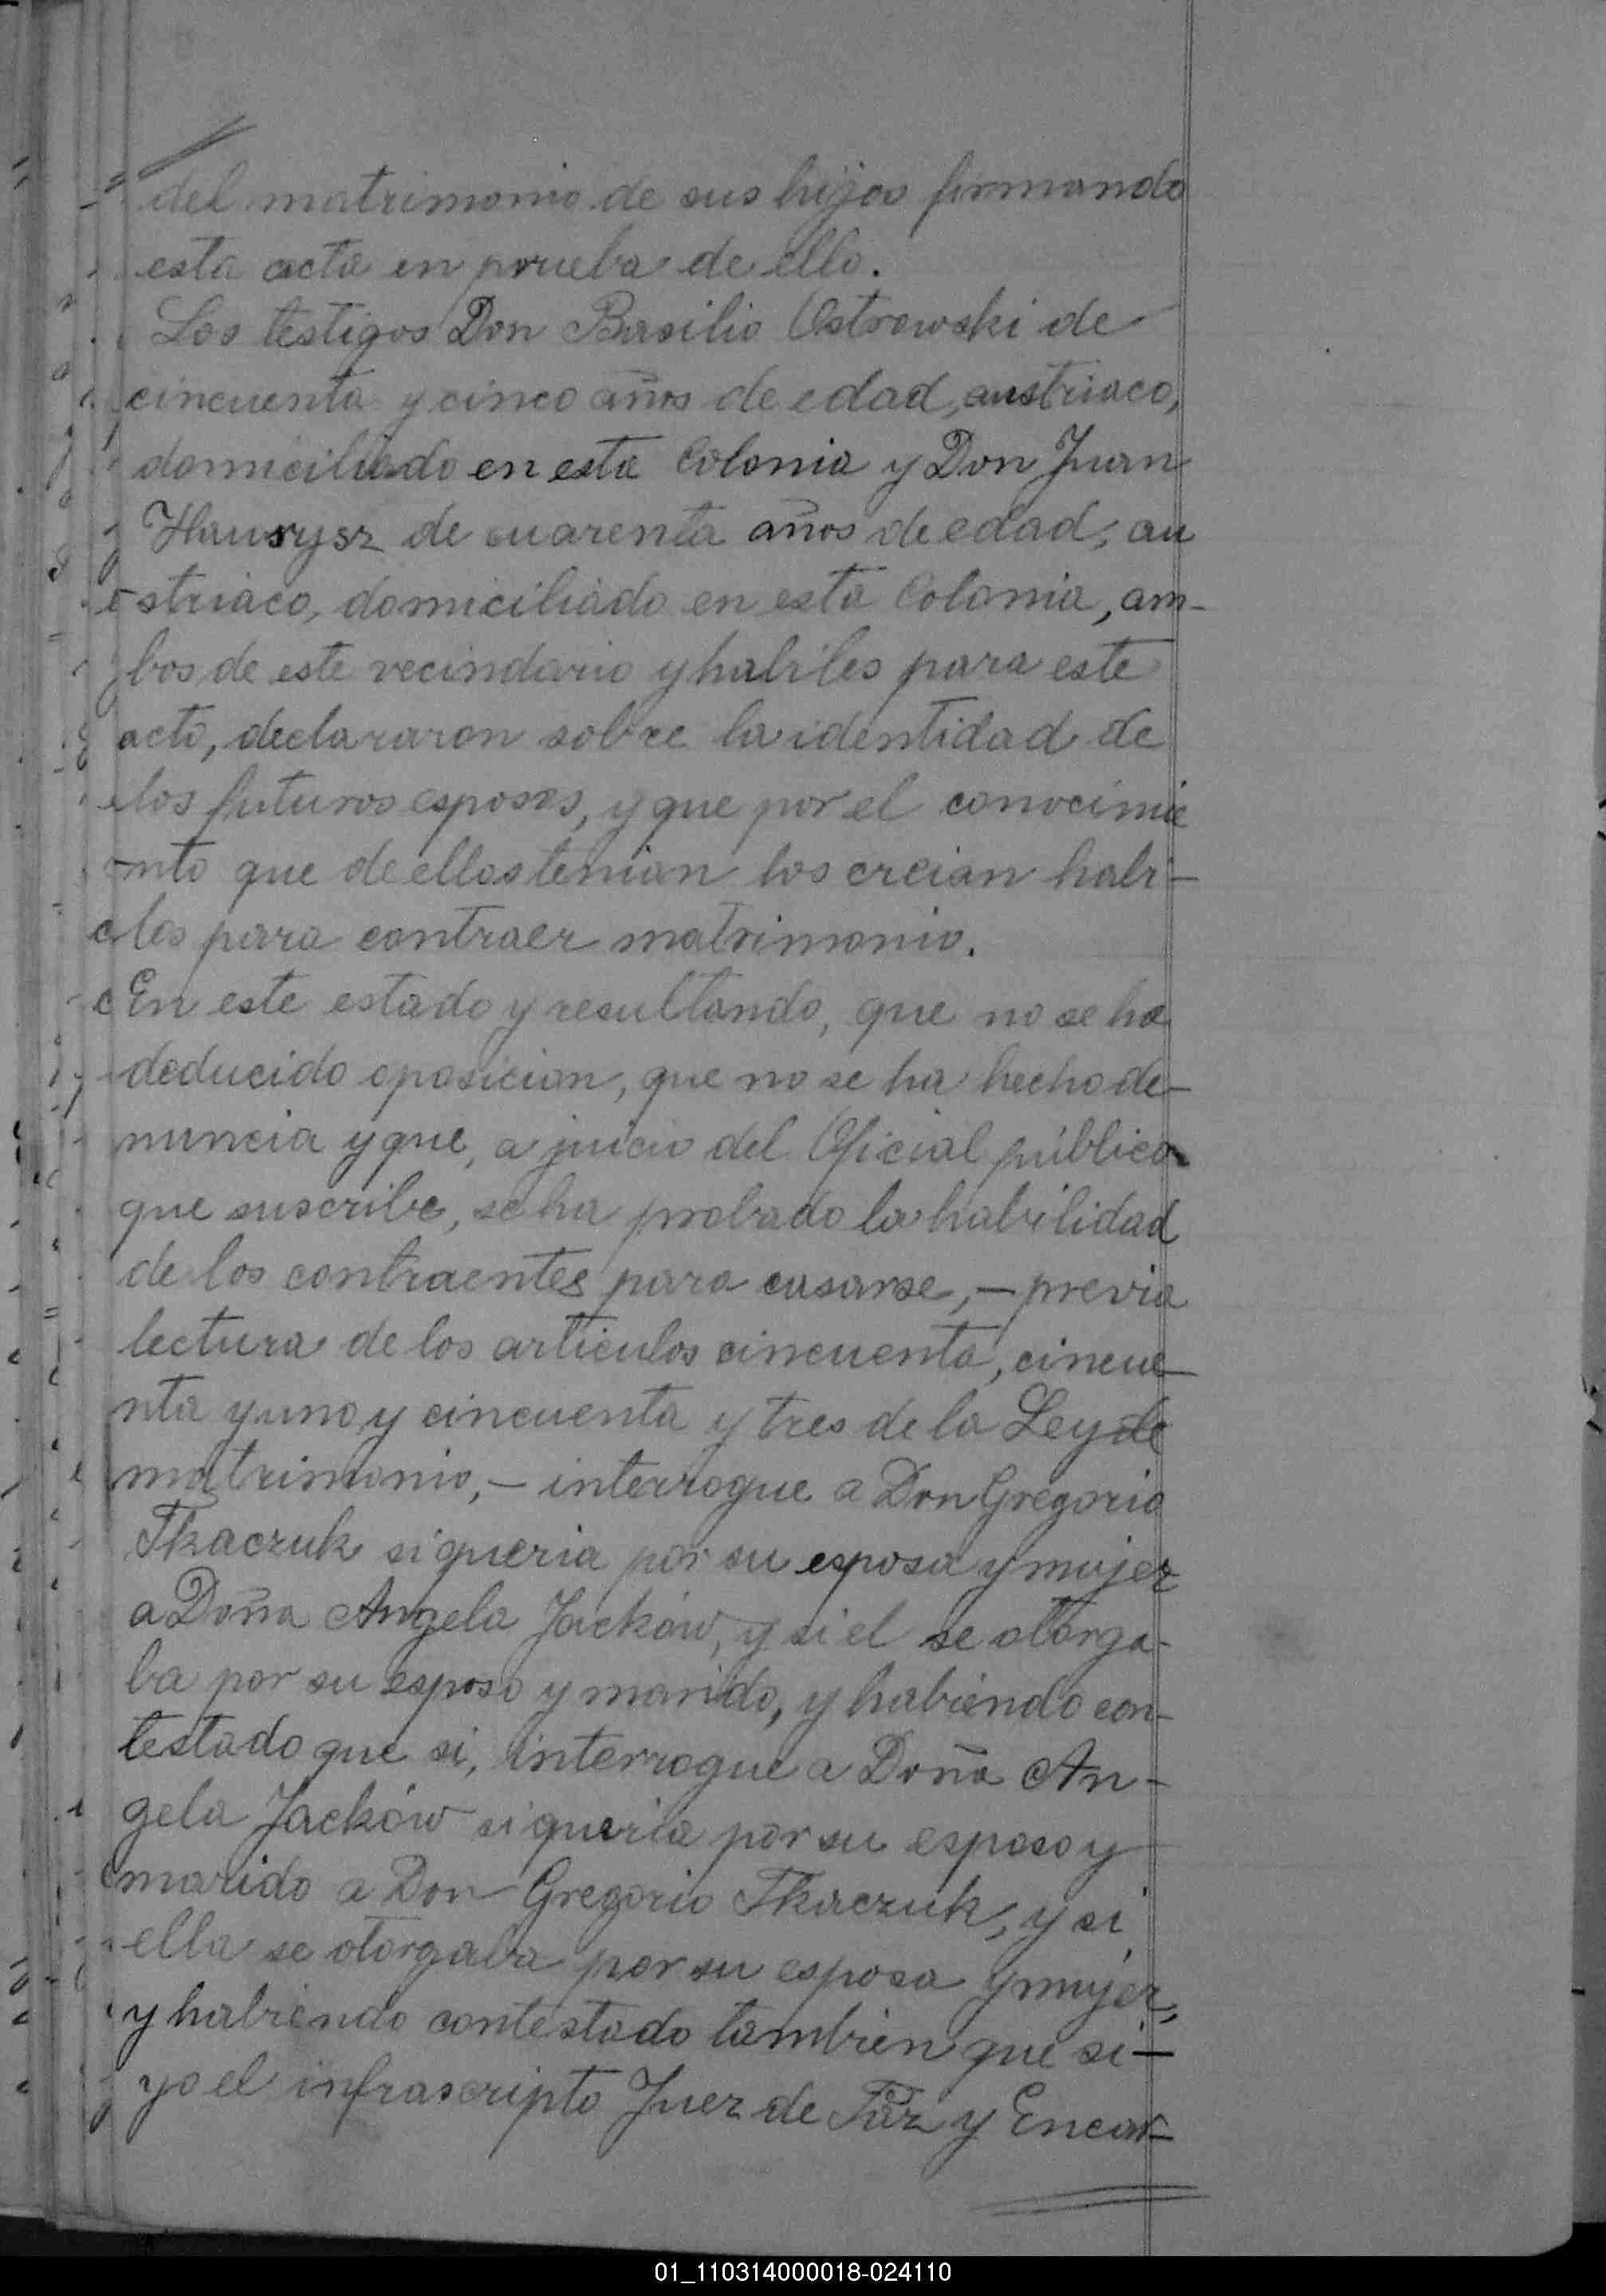 del matrimonio de sus hijos firmando
esta acta en prueba de ello.
Los testigos Don Basilio Ostrowski de
cincuenta y cinco años de edad, austriaco,
domiciliado en esta Colonia y Don Juan
Hawrysz de cuarenta años de edad, au
striaco, domiciliado en esta Colonia, am-
bos de este vecindario y habiles para este
acto, declararon sobre la identidad de
los futuros esposos, y que por el conocimie
nto que de ellos tenian los creian habi-
les para contraer matrimonio.
En este estado y resultando, que no se ha
deducido oposicion, que no se ha hecho de-
nuncia y que, a juicio del Oficial público
que suscribe, se ha probado la habilidad
de los contraentes para casarse, — previa
lectura de los articulos cincuenta, cincue
nta y uno y cincuenta y tres de la Ley de
matrimonio, — interrogue a Don Gregorio
Tkaczuk si queria por su esposa y mujer
a Doña Angela Jacków, y si el se otorga-
ba por su esposo y marido, y habiendo con-
testado que si, interrogue a Doña An-
gela Jacków si queria por su esposo y
marido a Don Gregorio Tkaczuk, y si
ella se otorgaba por su esposa y mujer,
y habiendo contestado tambien que si —
yo el infrascripto Juez de Paz y Encar-
01_110314000018-024110